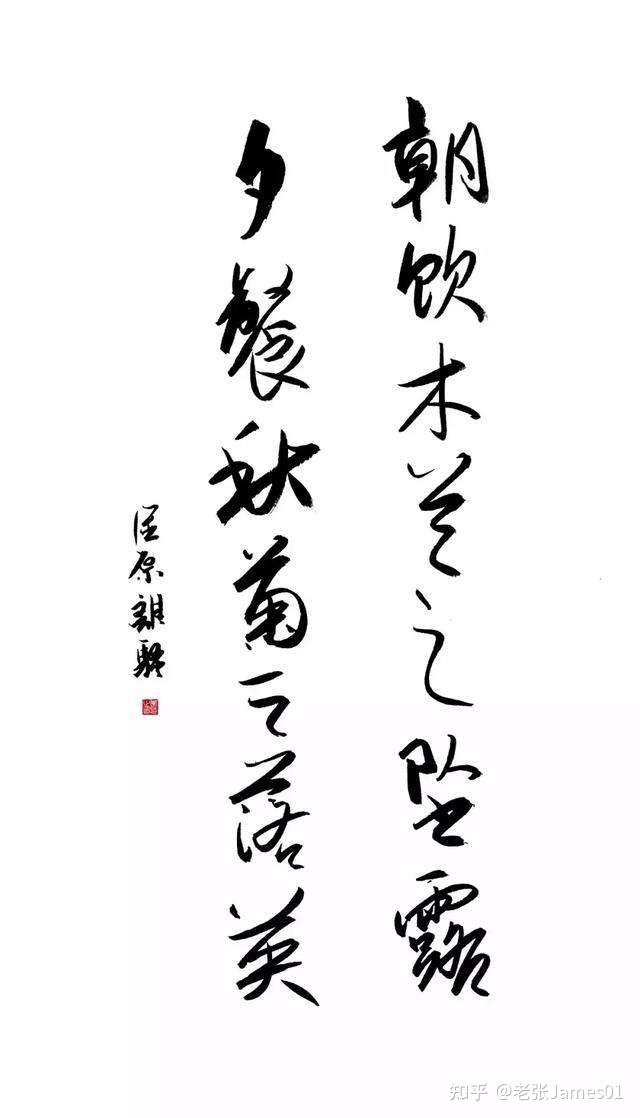 朝饮木兰之坠露
夕餐秋菊之落英
屈原離騷
知乎 @老张James01